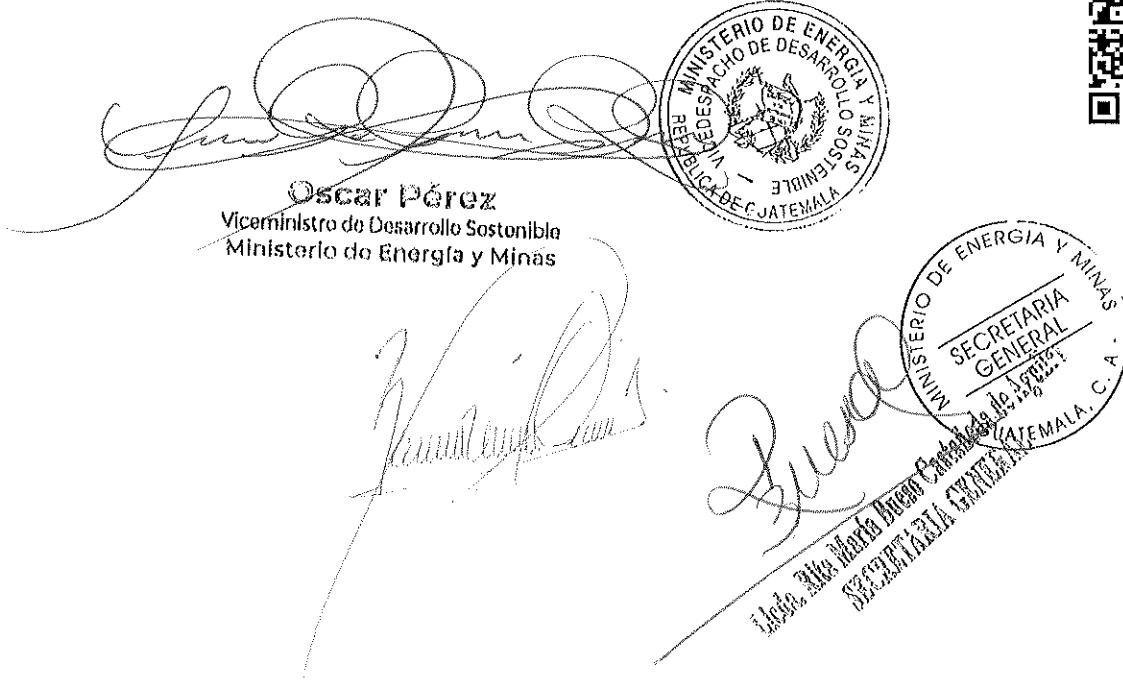 MINISTERIO DE ENERGIA Y MINAS
VICEDESPACHO DE DESARROLLO SOSTENIBLE
REPÚBLICA DE GUATEMALA
Oscar Pérez
Viceministro de Desarrollo Sostenible
Ministerio de Energía y Minas
MINISTERIO DE ENERGIA Y MINAS
SECRETARIA
GENERAL
GUATEMALA, C. A.
Bueso
Licda. Rita María Bueso Castañeda de
SECRETARIA GENERAL